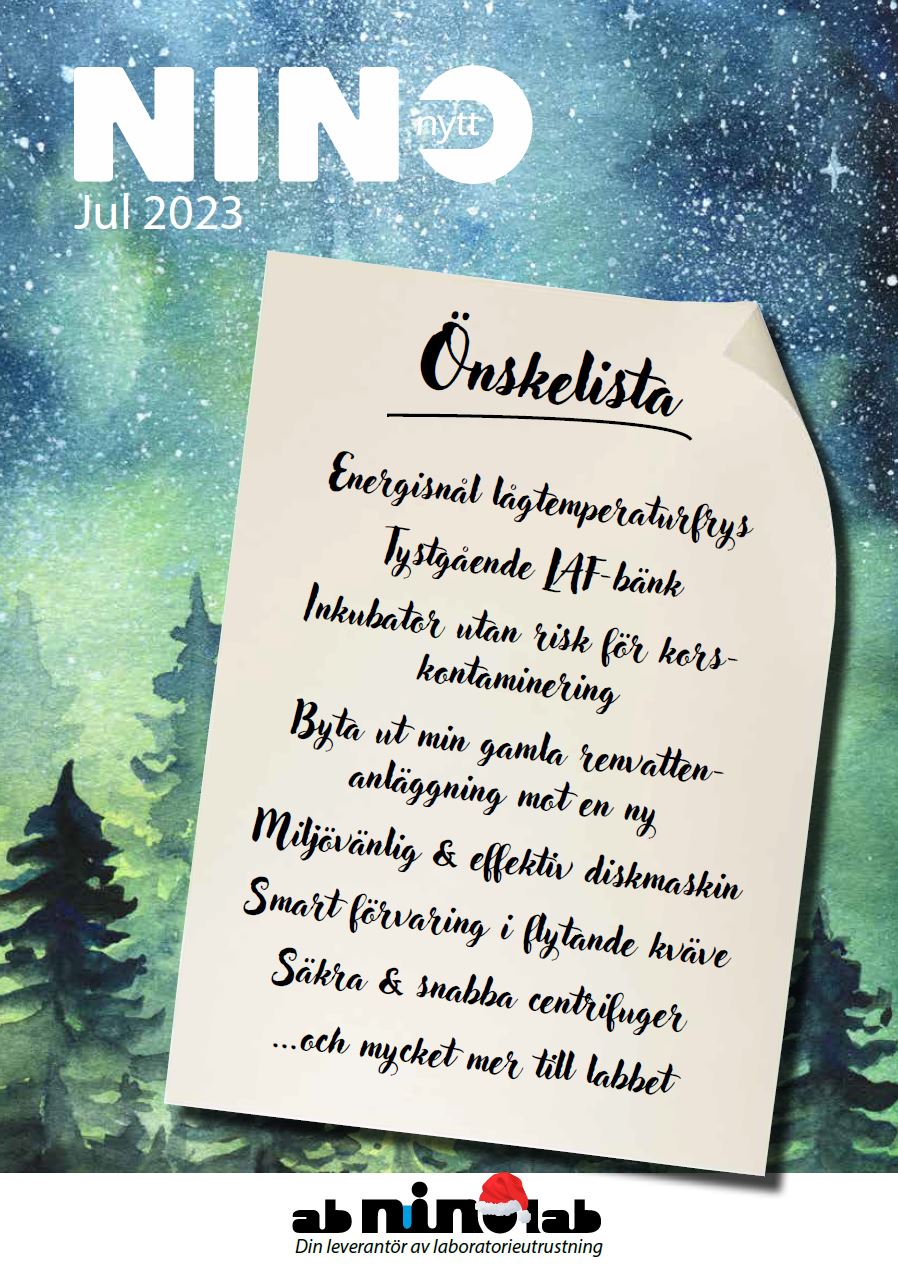 NINO
nytt
Jul 2023
Önskelista
Energisnål lågtemperaturfrys
Tystgående LAF-bänk
Inkubator utan risk för kors-
kontaminering
Byta ut min gamla renvatten-
anläggning mot en ny
Miljövänlig & effektiv diskmaskin
Smart förvaring i flytande kväve
Säkra & snabba centrifuger
...och mycket mer till labbet
ab ninolab
Din leverantör av laboratorieutrustning